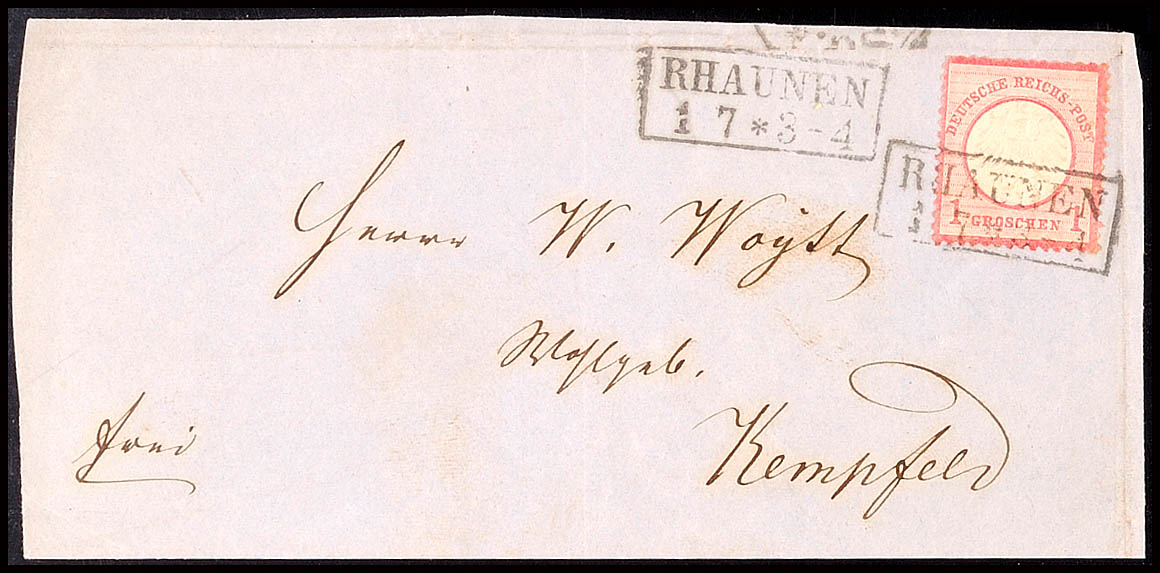 RHAUNEN
1 7 * 3-4
DEUTSCHE REICHS-POST
1 GROSCHEN 1
RHAUNEN
Herrn W. Woytt
Wohlgeb.
Kempfeld
frei